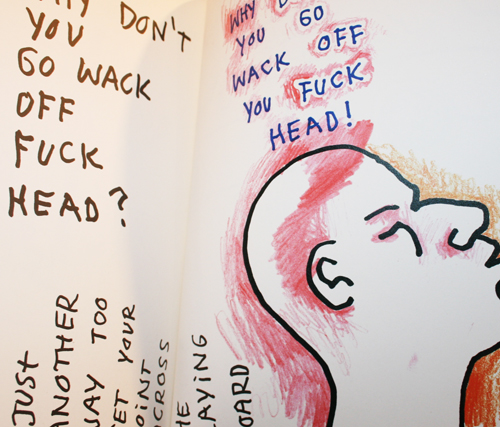 WHY DON'T
YOU
GO WACK
OFF
FUCK
HEAD?
WHY D
YOU GO
WACK OFF
YOU FUCK
HEAD!
JUST
ANOTHER
WAY TOO
GET YOUR
POINT
ACROSS
THE
PLAYING
BOARD